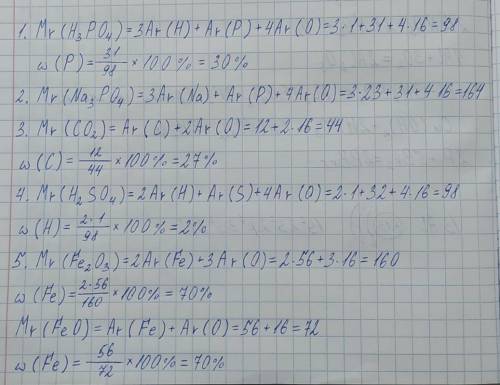 1. Mr(H₃PO₄)=3Ar(H)+Ar(P)+4Ar(O)=3·1+31+4·16=98
ω(P)=31/98×100%=30%
2. Mr(Na₃PO₄)=3Ar(Na)+Ar(P)+4Ar(O)=3·23+31+4·16=164
3. Mr(CO₂)=Ar(C)+2Ar(O)=12+2·16=44
ω(C)=12/44×100%=27%
4. Mr(H₂SO₄)=2Ar(H)+Ar(S)+4Ar(O)=2·1+32+4·16=98
ω(H)=2·1/98×100%=2%
5. Mr(Fe₂O₃)=2Ar(Fe)+3Ar(O)=2·56+3·16=160
ω(Fe)=2·56/160×100%=70%
Mr(FeO)=Ar(Fe)+Ar(O)=56+16=72
ω(Fe)=56/72×100%=70%